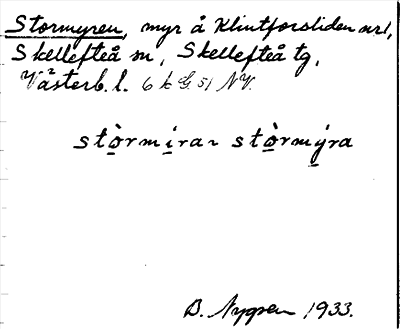 Stormyren, myr å Klintforsliden nr1,
Skellefteå sn, Skellefteå tg,
Västerb. l. 6 k G 51 NV.
stòrmi̱ra ~ stòrmý̱ra
B. Nygren 1933.